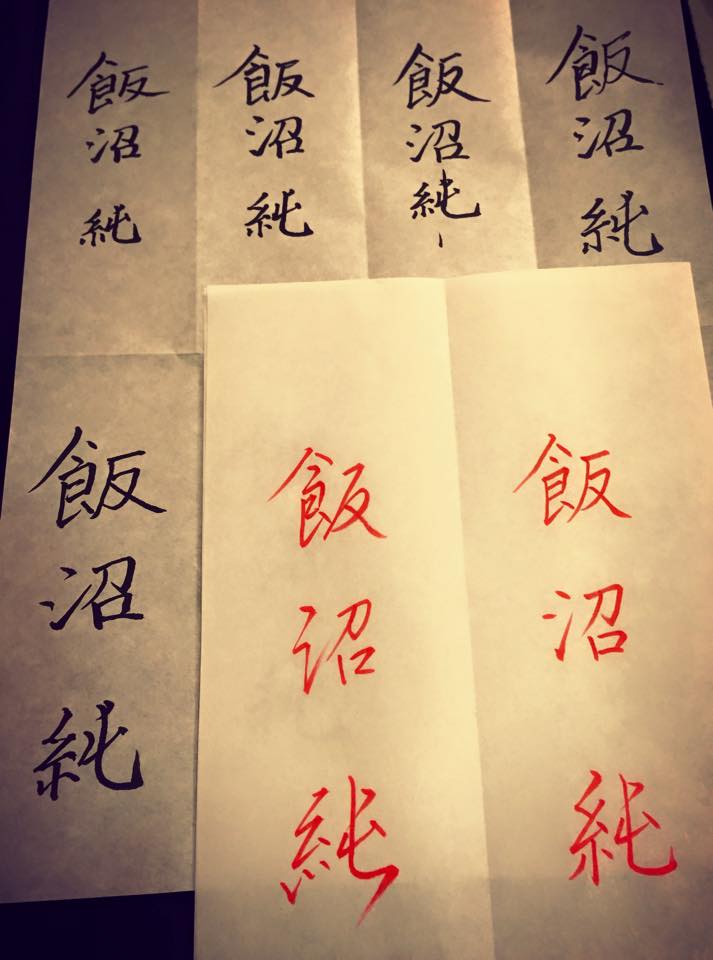 飯沼純
飯沼純
飯沼純
飯沼純
飯沼純
飯沼純
飯沼純